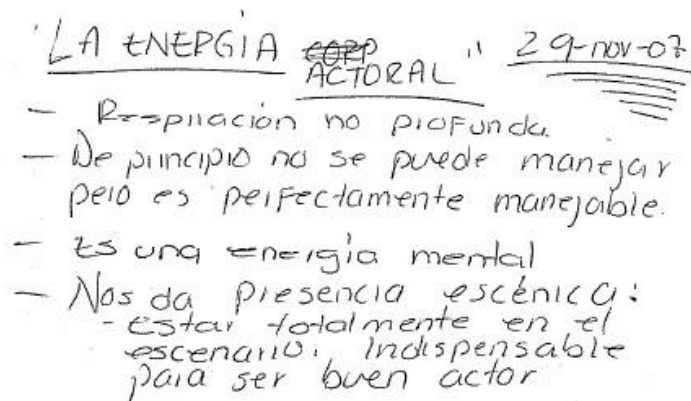 "LA ENERGÍA ACTORAL" 29-nov-07
- Respiración no profunda.
- De principio no se puede manejar
pero es perfectamente manejable.
- Es una energía mental
- Nos da presencia escénica:
- Estar totalmente en el
escenario. Indispensable
para ser buen actor